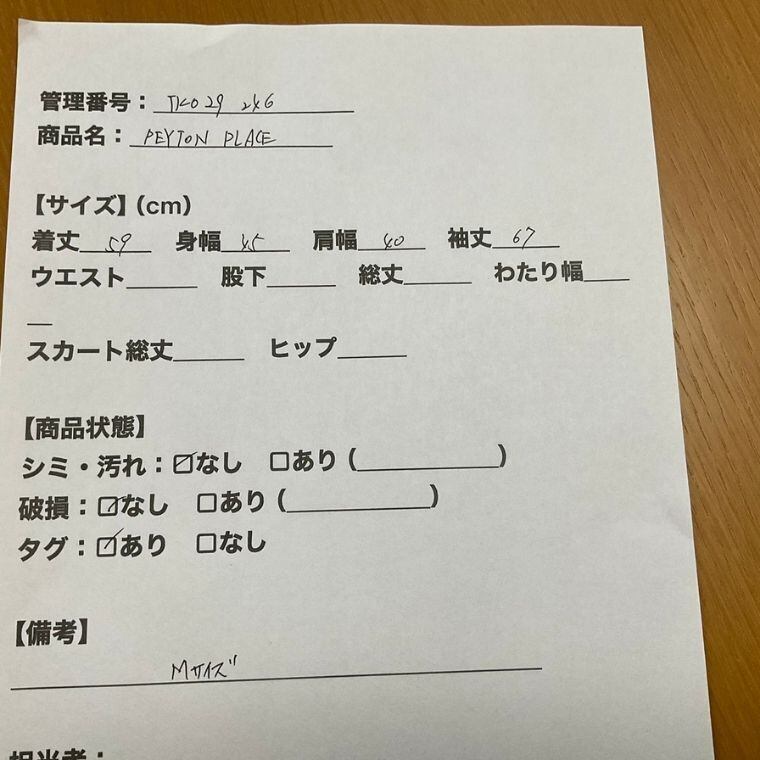 管理番号：TK029 246
商品名：PEYTON PLACE
【サイズ】(cm)
着丈 59 身幅 45 肩幅 40 袖丈 67
ウエスト______ 股下______ 総丈______ わたり幅____
__
スカート総丈______ ヒップ______
【商品状態】
シミ・汚れ：☑なし □あり (____________)
破損：☑なし □あり (____________)
タグ：☑あり □なし
【備考】
Mサイズ
担当者：